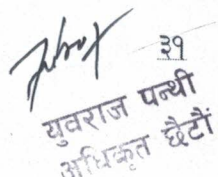 ३१
युवराज पन्थी
अधिकृत छैटौं